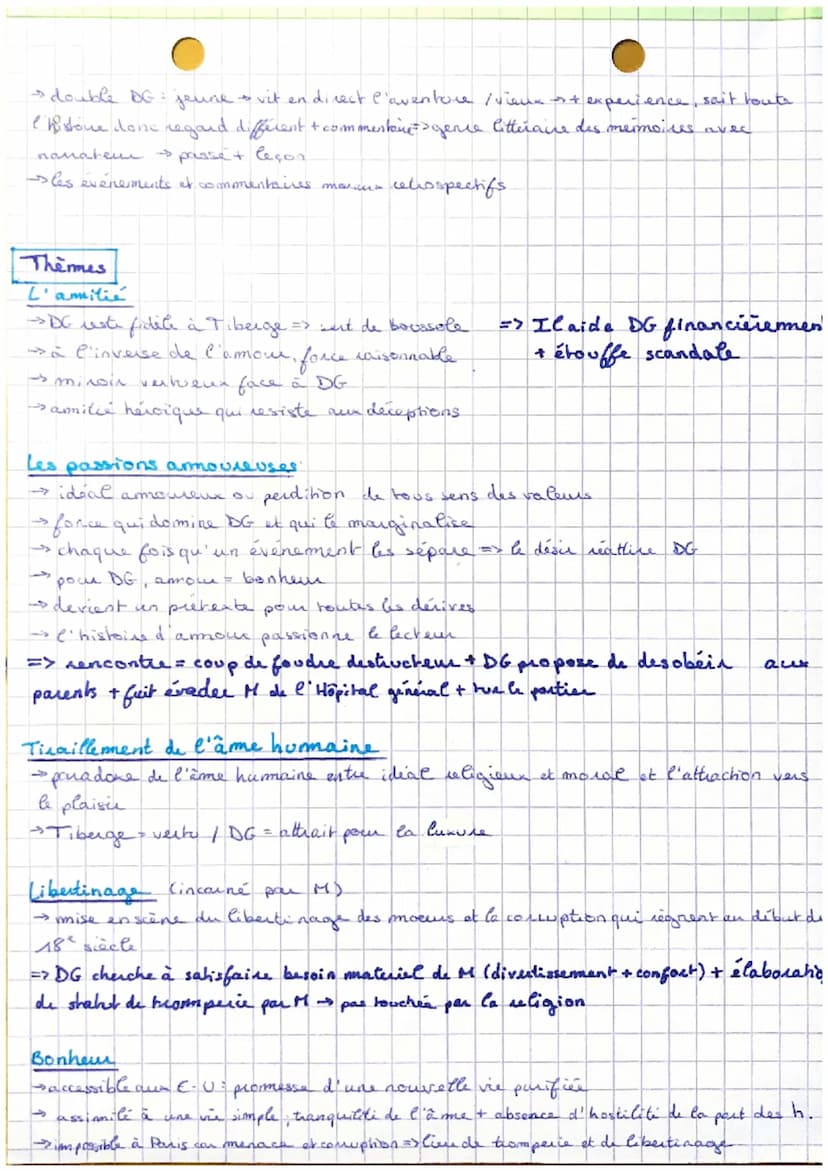 → double DG : jeune → vit en direct l'aventure / vieux → + expérience, sait toute
l'histoire donc regard différent + commentaire => genre littéraire des mémoires avec
narrateur → passé + leçon
→ les événements et commentaires rétrospectifs
Thèmes
L'amitié
→ DG reste fidèle à Tiberge => sert de boussole => Il aide DG financièrement
→ à l'inverse de l'amour, force raisonnable + étouffe scandale
→ miroir vertueux face à DG
→ amitié héroïque qui résiste aux déceptions
Les passions amoureuses
→ idéal amoureux ou perdition de tous sens des valeurs
→ force qui domine DG et qui le marginalise
→ chaque fois qu'un événement les sépare => le désir réattire DG
→ pour DG, amour = bonheur
→ devient un prétexte pour toutes les dérives
→ l'histoire d'amour passionne le lecteur
=> rencontre = coup de foudre destructeur + DG propose de desobéir aux
parents + fait évader M de l'Hôpital général + tue le portier
Tiraillement de l'âme humaine
→ paradoxe de l'âme humaine entre idéal religieux et moral et l'attraction vers
le plaisir
→ Tiberge = vertu / DG = attrait pour la luxure
Libertinage (incarné par M)
→ mise en scène du libertinage des moeurs et la corruption qui règnent au début du
18e siècle
=> DG cherche à satisfaire besoin matériel de M (divertissement + confort) + élaboratio
de de tromperie par M → pas touchée par la religion
Bonheur
→ accessible aux E-U : promesse d'une nouvelle vie purifiée
→ assimilé à une vie simple ; tranquilité de l'âme + absence d'hostilité de la part des h.
→ impossible à Paris car menace et corruption => lieu de tromperie et de libertinage